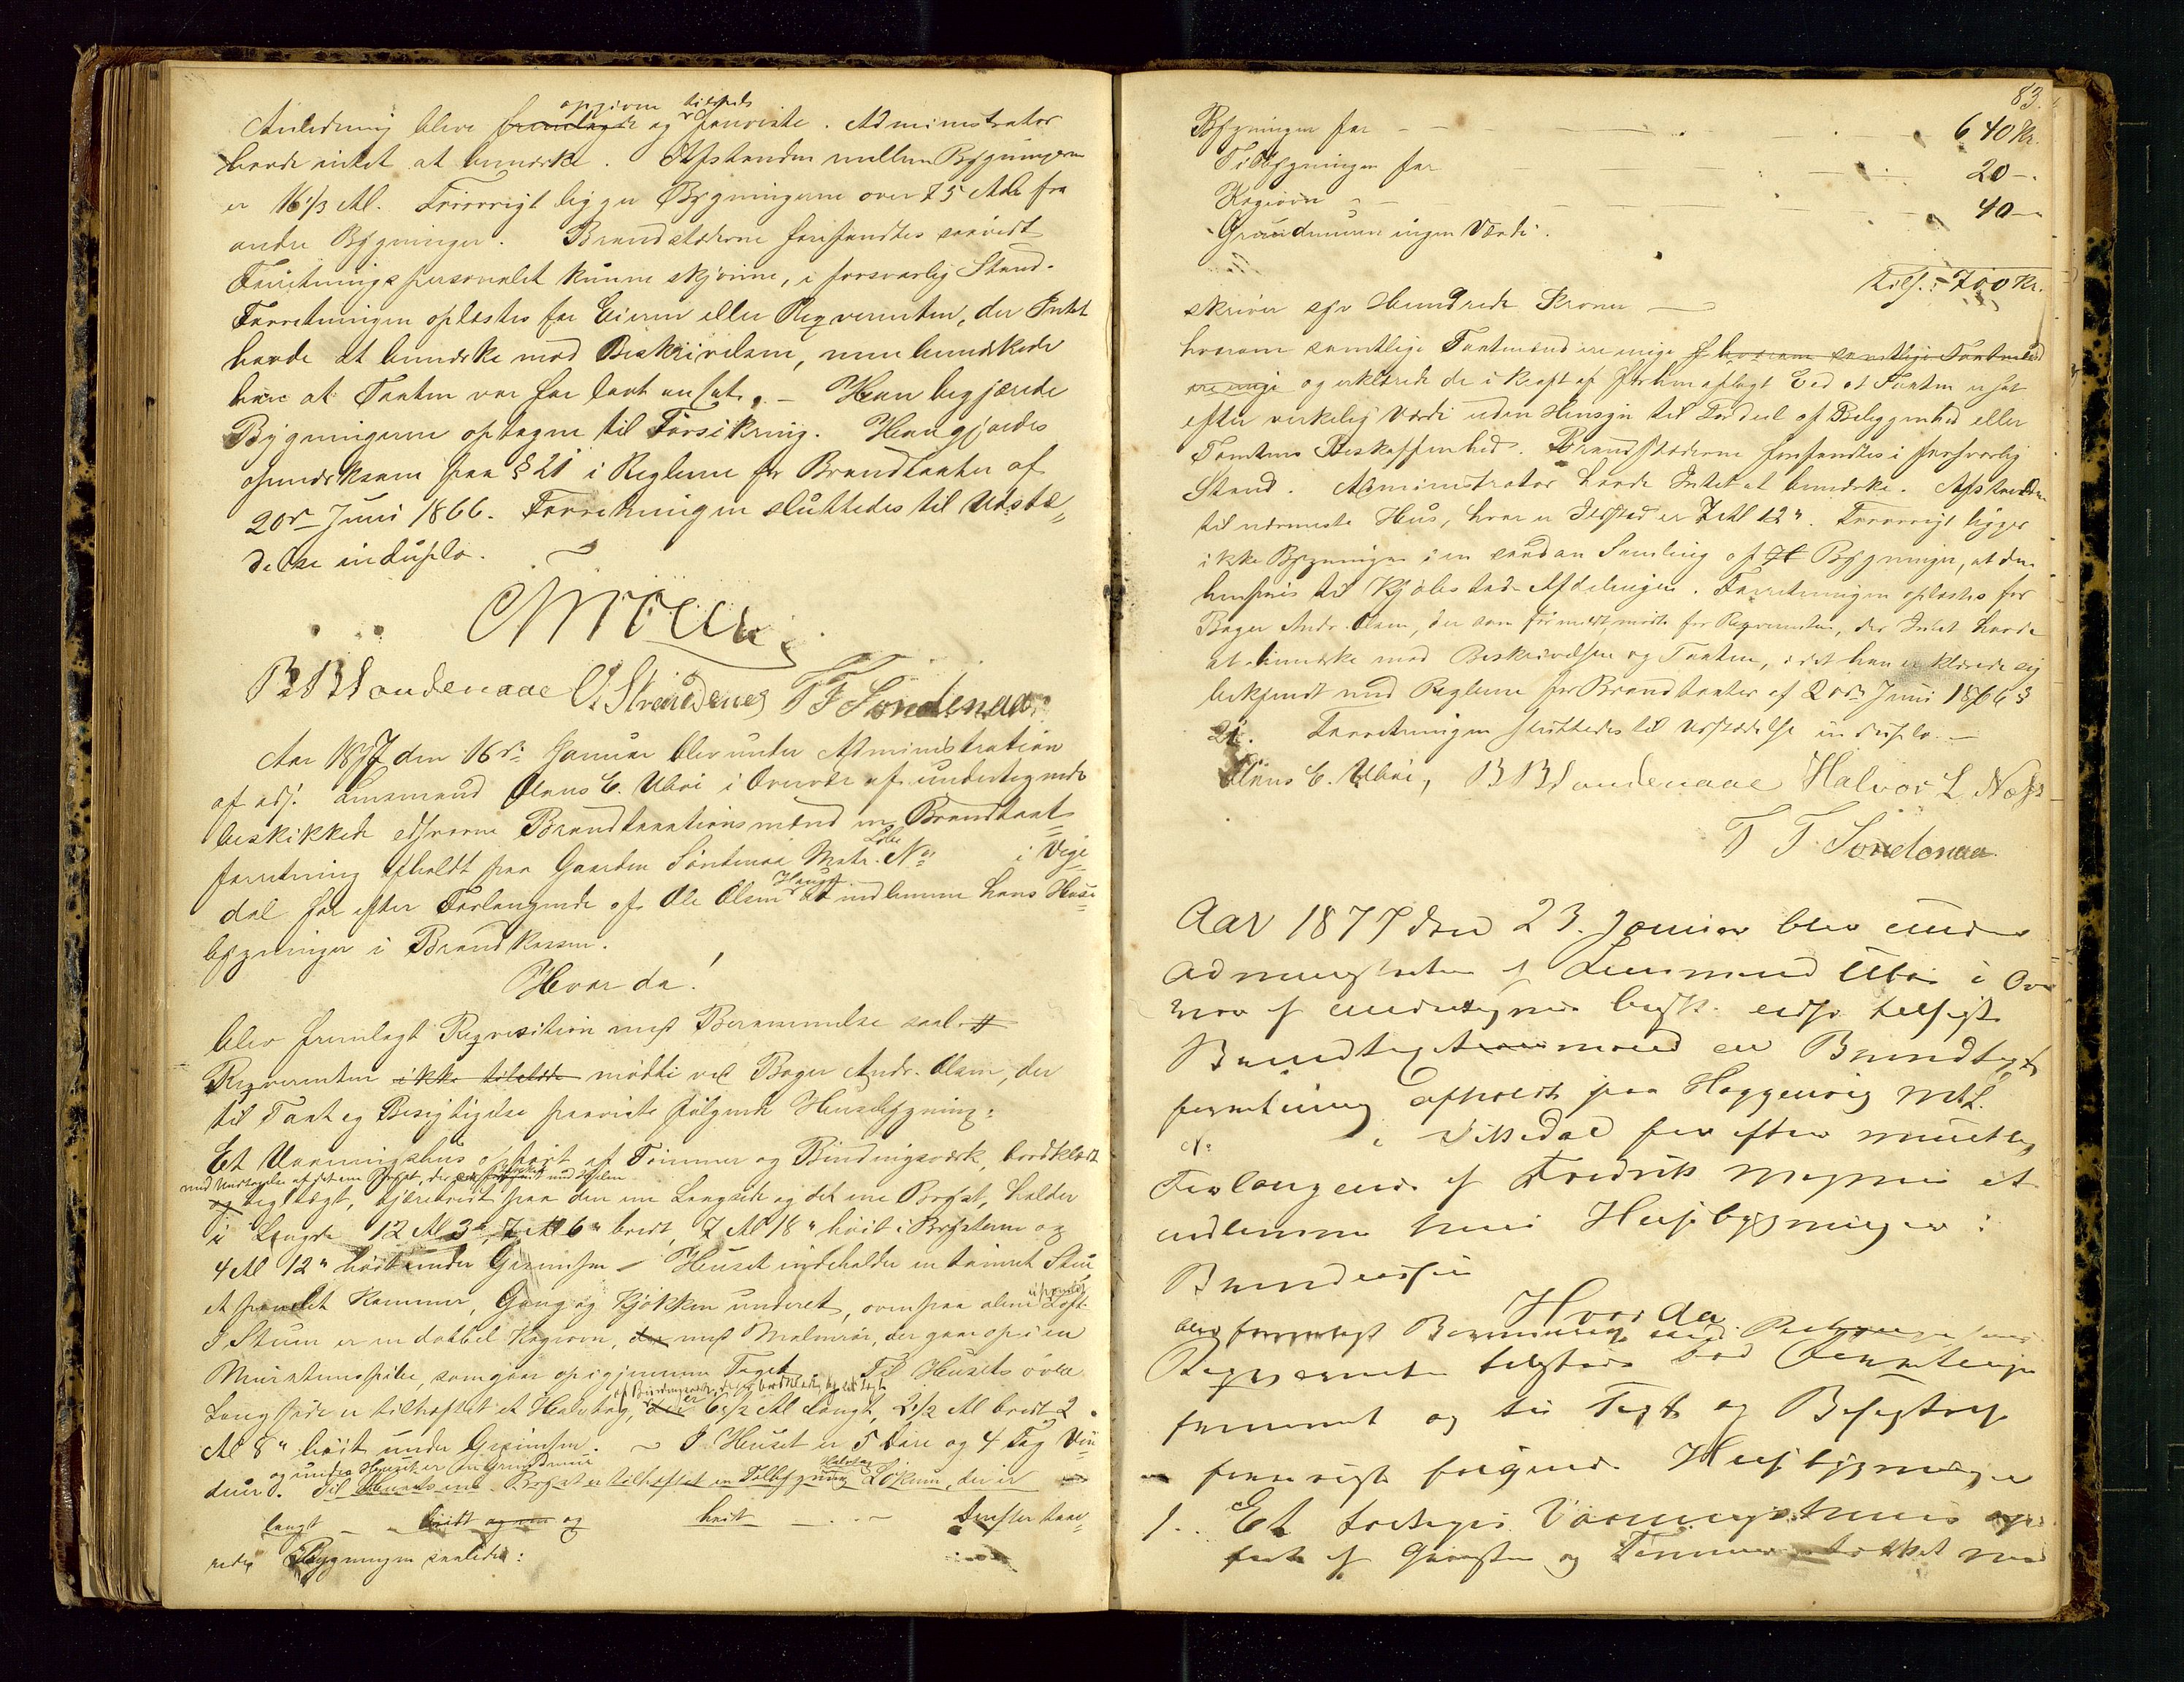 Anledning bleve fremlagde opgivne tilstede og paaviste. Administrator
havde intet at bemærke. Afstanden mellem Bygningerne
er 16 1/3 Al. Forøvrigt ligger Bygningerne over 75 Al. fra
andre Bygninger. Brandstederne forefandtes saavidt
Forretningspersonalet kunne skjønne, i forsvarlig Stand.
Forretningen oplæstes for Eieren eller Reqvirenten, der Intet
havde at bemærke mod Beskrivelsen, men bemærkede
kun at Taxten var for lavt ansat. – Han begjærede
Bygningerne optagne til Forsikring. Han gjordes
opmærksom paa § 21 i Reglerne for Brandtaxter af
20de Juni 1866. Forretningen sluttedes til Udstæ„
delse in duplo.
B B Søndenaae O. Strandenæs T T Søndenaa
Aar 1877 den 16de Januar blev under Administration
af adj. Lensmand Olaus E. Ubøe i Overvær af undertegnede
beskikkede edsvorne Brandtaxationsmænd en Brandtaxt
forretning afholdt paa Gaarden Søndenaa Matr. Løbe No i Vige
dal for efter Forlangende af Ole Olsen Haugs at indlemme hans Huse
bygninger i Brandkassen.
Hvor da!
blev fremlagt Reqvisition med Berammelse saal. #
Reqvirenten ikke tilstede mødte ved Bager Andr. Olsen, der
til Taxt og Besigtigelse paaviste følgende Husebygning:
Et Vaaningshus opført af Tømmer og Bindingsværk, bordklædt
med Undtagelse af det ene Brøst, der er med
og teglægt, tjærebredt paa den ene Langside og det ene Brøst, holder
i Længde 12 Al 3", 7 Al 6" bredt, 7 Al 18" høit i Brøsterne og
4 Al 12" høit under Gesimsen – Huset indeholder en tømret Stue
et panelet Kammer, Gang og Kjøkken underet, ovenpaa alene uindredet Loft.
I Stuen er en dobbel Kogeovn, der med Malmrør, der gaar op i en
Murstenspibe, som gaar op igjennem Taget. Til Husets øvre
Langside er tilhæftet et Halvtag, af Bindingsværk, der er 6 1/2 Al langt, 2 1/2 Al bredt 2
Al 8" høit under Gesimsen. – I Huset er 5 Døre og 4 Fag Vin
duer. og under Huset er en Grundmuur Til Husets ene Brøst er tilhæftet en Tilbygning Halvtag Lokum, der er
langt – bredt og en og høit – . – Derefter taxe„
redes Bygningen saaledes:
83.
Bygningen for – – – 640 Kr.
Tilbygningen for – – – 20 –.
Kogeovn – – – 40 –
Grundmuren ingen Værdi.
Tils: 700 Kr.
skriver syv Hundrede Kroner –
hvorom samtlige Taxtmænd ere enige hvorom samtlige Taxtmænd
ere enige og erklærede de i Kraft af før aflagt Eed at Taxten er sat
efter virkelig Værdi uden Hensyn til Fordeel af Beliggenhed eller
Tomtens Beskaffenhed. Brandstederne forefandtes i forsvarlig
Stand. Administrator havde Intet at bemærke. Afstanden
til nærmeste Hus, hvor er Ildsted er 7 Al 12". Forøvrigt ligger
ikke Bygningen i en saadan Samling af H Bygninger, at den
henføres til Kjøbstad-Afdelingen. Forretningen oplæstes for
Bager Andr. Olsen, der som før meldt mødte for Reqvirenten, der Intet havde
at bemærke mod Beskrivelsen og Taxten, idet han erklærede sig
bekjendt med Reglerne for Brandtaxter af 20de Juni 1866 §
21. Forretningen sluttedes til Udstædelse in duplo. –
Olaus E. Ubøe, B B Søndenaae Halvor L Næss
T T Søndenaa.
Aar 1877 den 23. Januar blev under
Administration af Lensmand Ubøe i Over
vær af undertegnede besk. edsv.
Brandtaxtmænd en Brandtaxt
forretning afholdt paa Haggenvig Mtl.
No i Vikedal for efter mundtlig
Forlangende af Fredrik Magnus at
indlemme hans Husebygninger i
Brandkassen
Hvor da
blev fremlagt Berammelse
Reqvirenten tilstede bad Forretningen
fremmet og til Taxt og Besigtigelse
paaviste følgende Husebygninger
1. Et toetages Vaaningshuus op
ført af Graasten og Tømmer tækket med